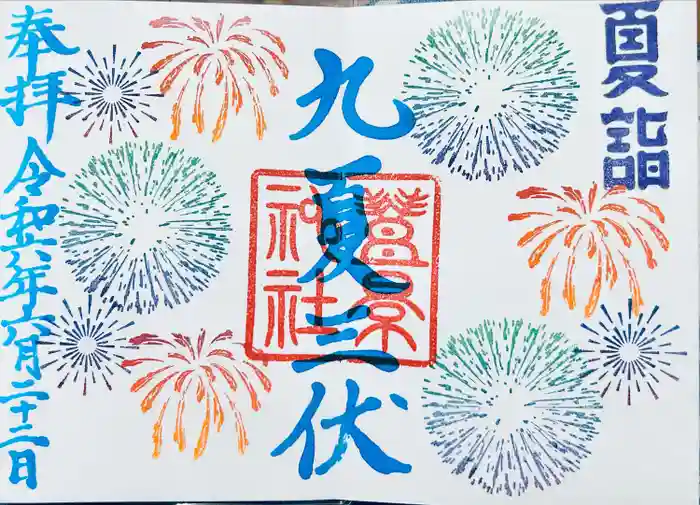 夏詣
九夏三伏
菅原
神社
奉拝
令和六年六月二十二日